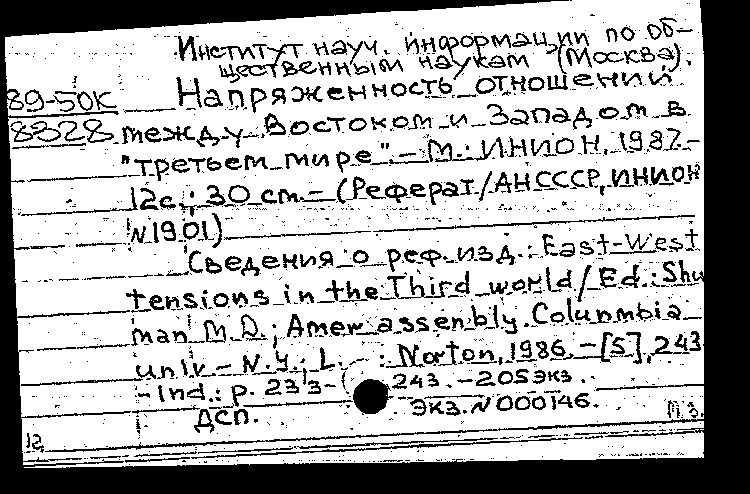 Институт науч. информации по об-
щественным наукам (Москва).
89-50К Напряженность отношений
8828 между Востоком и Западом в
"третьем мире".- М.: ИНИОН, 1987.-
12с.; 30 см.- (Реферат/АН СССР, ИНИОН
N1901)
Сведения о реф. изд.: East-West
tensions in the Third world/Ed.: Shu
man M.D.; Amer assenbly. Colunmbia
univ.- N.Y.; L. : Norton, 1986.-[5], 243
-Ind.: p. 233- 243. -205экз.
ДСП. Экз. N000146.
12 М.З.